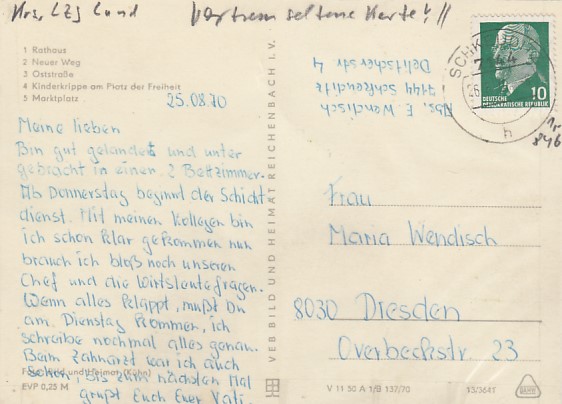 Krs. LZJ Land
extrem seltene Karte!!
1 Rathaus
2 Neuer Weg
3 Oststraße
4 Kinderkrippe am Platz der Freiheit
5 Marktplatz
25.08.70
Meine lieben
Bin gut gelandet und unter
gebracht in einen 2 Bettzimmer.
Ab Donnerstag beginnt der Schicht
dienst. Mit meinen Kollegen bin
ich schon klar gekommen nun
brauch ich bloß noch unseren
Chef und die Wirtsleute fragen.
Wenn alles klappt, mußt Du
am Dienstag kommen, ich
schreibe nochmal alles genau.
Beim Zahnarzt war ich auch
schon, bis zum nächsten Mal
grüßt Euch Euer Vati.
Foto: Bild und Heimat (Kühn)
EVP 0,25 M
VEB BILD UND HEIMAT REICHENBACH I. V.
Abs. E. Wendisch
7144 Schkeuditz
Delitzscher str
4
SCHKEUDITZ
7144
h
10
DEUTSCHE
DEMOKRATISCHE REPUBLIK
846
Frau
Maria Wendisch
8030 Dresden
Overbeckstr. 23
V 11 50 A 1/B 137/70
13/364T